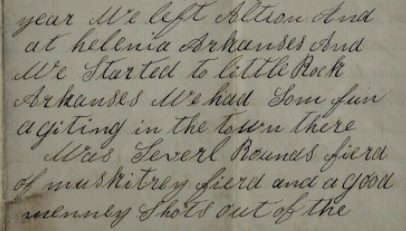 year We left Altion And
at helenia Arkanses And
We Started to little Rock
Arkanses We had Som fun
agiting in the town there
Was Severl Rounds fierd
of muskitrey fierd and a good
menney Shots out of the